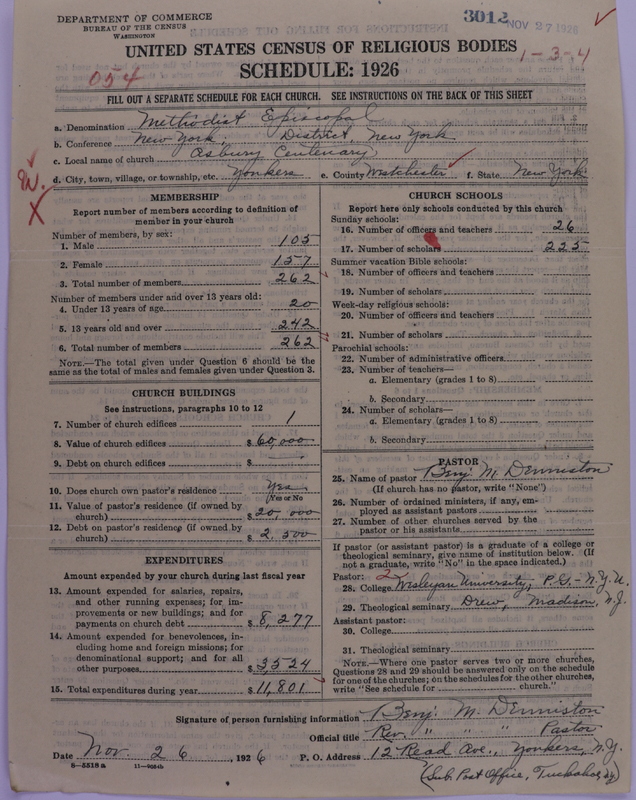 DEPARTMENT OF COMMERCE
BUREAU OF THE CENSUS
WASHINGTON
3012 NOV 27 1926
UNITED STATES CENSUS OF RELIGIOUS BODIES
1-3-4
SCHEDULE: 1926
054
FILL OUT A SEPARATE SCHEDULE FOR EACH CHURCH. SEE INSTRUCTIONS ON THE BACK OF THIS SHEET
a. Denomination Methodist Episcopal
b. Conference New York, District, New York
c. Local name of church Asbury Centenary
d. City, town, village, or township, etc. Yonkers e. County Westchester f. State New York
W.
X
MEMBERSHIP
Report number of members according to definition of member in your church
Number of members, by sex:
1. Male 105
2. Female 157
3. Total number of members 262
Number of members under and over 13 years old:
4. Under 13 years of age 20
5. 13 years old and over 242
6. Total number of members 262
NOTE.—The total given under Question 6 should be the same as the total of males and females given under Question 3.
CHURCH BUILDINGS
See instructions, paragraphs 10 to 12
7. Number of church edifices 1
8. Value of church edifices $ 60,000
9. Debt on church edifices $ —
10. Does church own pastor's residence Yes
(Yes or No)
11. Value of pastor's residence (if owned by church) $ 20,000
12. Debt on pastor's residence (if owned by church) $ 2,500
EXPENDITURES
Amount expended by your church during last fiscal year
13. Amount expended for salaries, repairs, and other running expenses; for improvements or new buildings; and for payments on church debt $ 8,277
14. Amount expended for benevolences, including home and foreign missions; for denominational support; and for all other purposes $ 3524
15. Total expenditures during year $ 11,801
CHURCH SCHOOLS
Report here only schools conducted by this church
Sunday schools:
16. Number of officers and teachers 26
17. Number of scholars 225
Summer vacation Bible schools:
18. Number of officers and teachers
19. Number of scholars
Week-day religious schools:
20. Number of officers and teachers
21. Number of scholars
Parochial schools:
22. Number of administrative officers
23. Number of teachers—
a. Elementary (grades 1 to 8)
b. Secondary
24. Number of scholars—
a. Elementary (grades 1 to 8)
b. Secondary
PASTOR
25. Name of pastor Benj. M. Denniston
(If church has no pastor, write "None")
26. Number of ordained ministers, if any, employed as assistant pastors
27. Number of other churches served by the pastor or his assistants
If pastor (or assistant pastor) is a graduate of a college or theological seminary, give name of institution below. (If not a graduate, write "No" in the space indicated.)
Pastor: 2
28. College Wesleyan University, P.G.-N.Y.U.
29. Theological seminary Drew, Madison, N.J.
Assistant pastor:
30. College
31. Theological seminary
NOTE.—Where one pastor serves two or more churches, Questions 28 and 29 should be answered only on the schedule for one of the churches; on the schedules for the other churches, write "See schedule for church."
Signature of person furnishing information Benj. M. Denniston
Official title Rev. " " " Pastor
Date Nov. 26, 1926 P. O. Address 12 Read Ave., Yonkers, N.Y.
8—5518a 11—9084b
(Sub Post Office, Tuckahoe, NY)